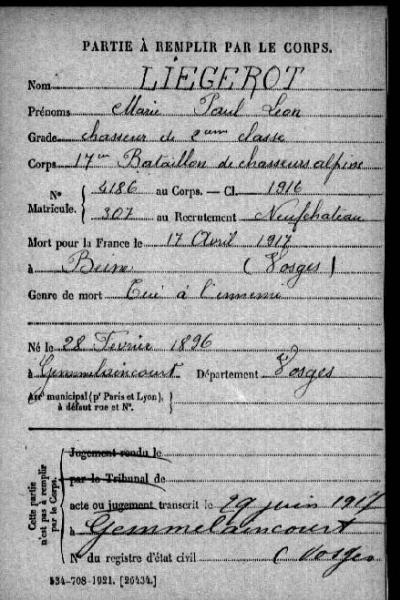 PARTIE À REMPLIR PAR LE CORPS.
Nom LIÉGEROT
Prénoms Marie Paul Léon
Grade chasseur de 2eme classe
Corps 17me Bataillon de chasseurs alpins
Nos Matricule. { 4186 au Corps. — Cl. 1916
307 au Recrutement Neufchateau
Mort pour la France le 17 Avril 1917
à Beine (Vosges)
Genre de mort Tué à l'ennemi
Né le 28 Février 1896
à Gemmelaincourt Département Vosges
Arr municipal (pr Paris et Lyon),
à défaut rue et N°.
Cette partie n'est pas à remplir par le Corps.
Jugement rendu le
par le Tribunal de
acte ou jugement transcrit le 29 juin 1917
à Gemmelaincourt
N° du registre d'état civil (Vosges
534-708-1921. [26434.]